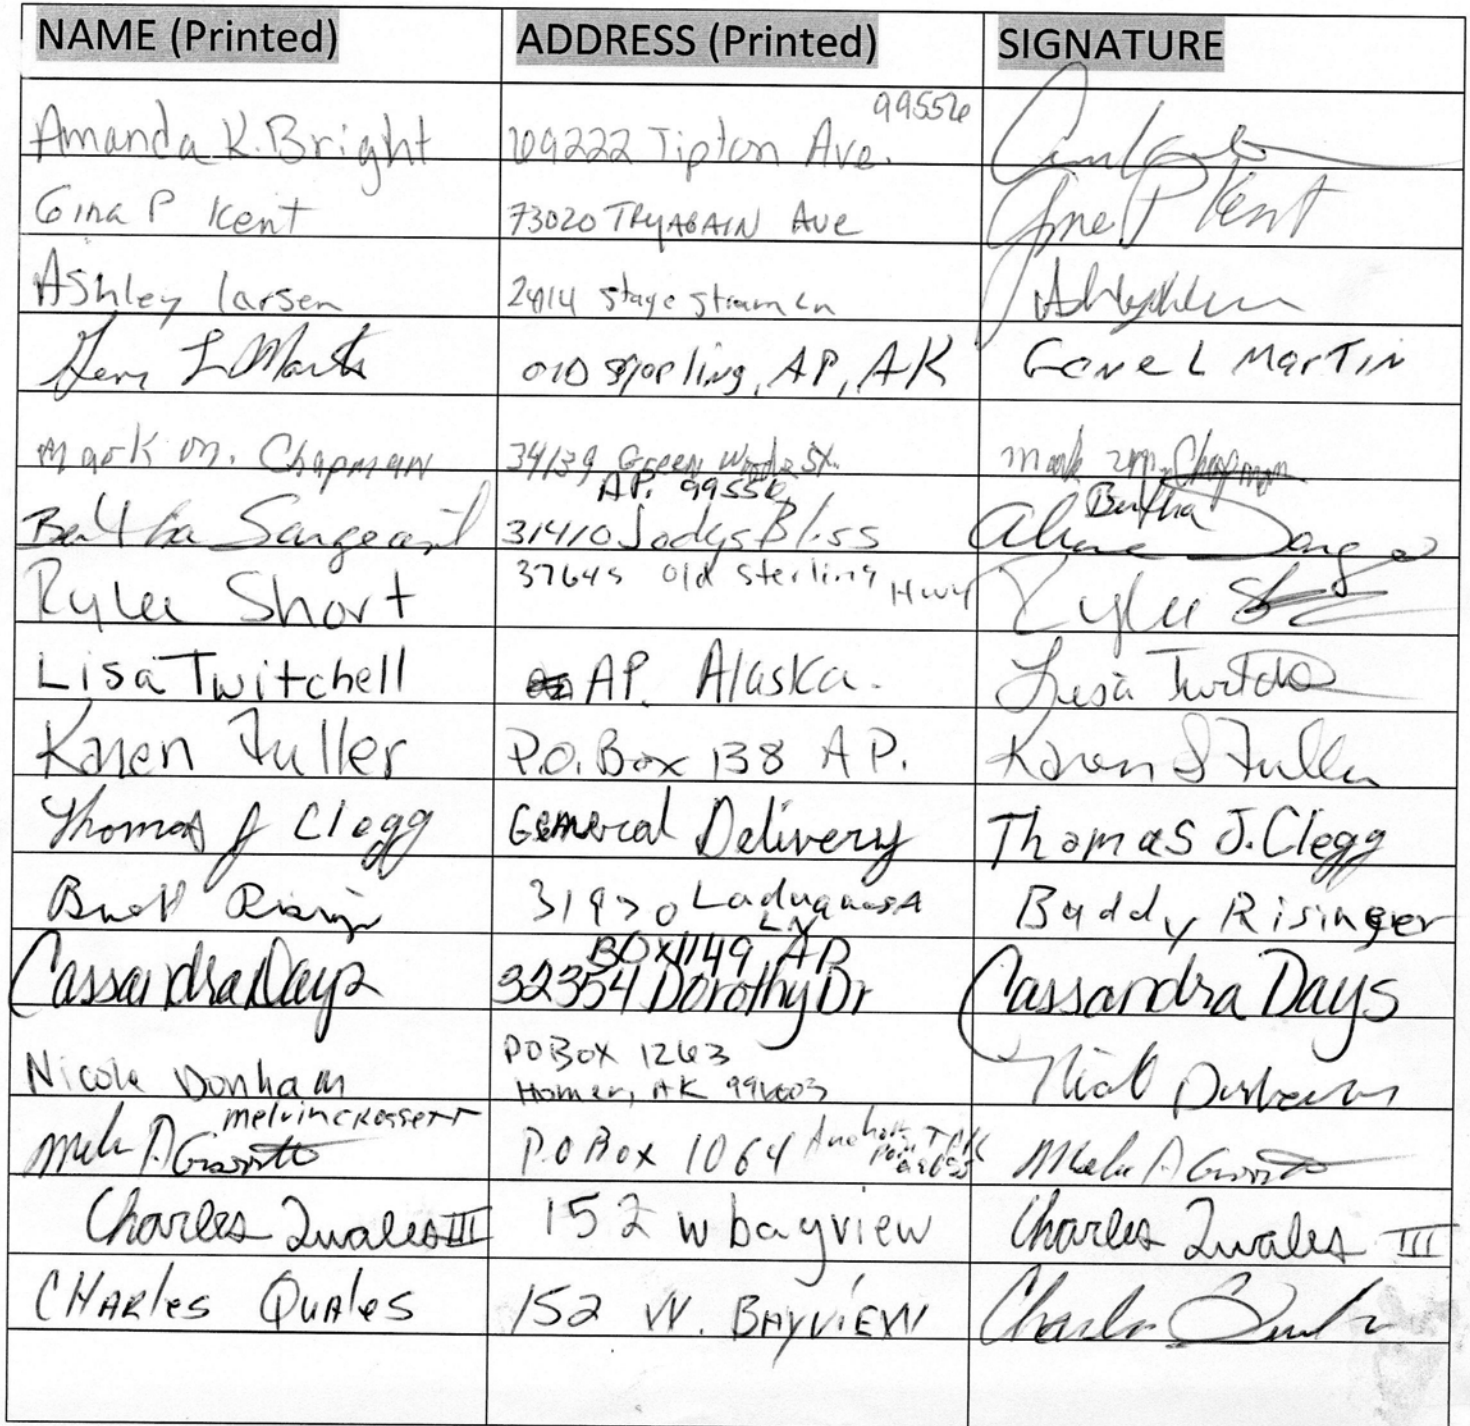 NAME (Printed) ADDRESS (Printed) SIGNATURE
99556
Amanda K. Bright 69222 Tipton Ave.
Gina P Kent 73020 TRYAGAIN Ave Gina P Kent
Ashley larsen stage stream Ln
L Martin old sterling, AP, AK Gene L MarTin
Mark M. Chapman 34139 Green Woods St. Mark M. Chapman
AP. 99556 Bertha
Bertha Sargeant 31410 Jodys Bliss
Rylee Short 37645 old sterling Hwy Rylee
Lisa Twitchell AP. Alaska. Lisa
Karen Fuller P.O. Box 138 AP. Karen S Fuller
Thomas J Clegg General Delivery Thomas J. Clegg
Buddy Risinger
LN
BOX 1149 AP
Cassandra Days 32354 Dorothy Dr Cassandra Days
PO Box 1263
Nicole Donham Homer, AK 99603 Nicole Donham
melvin crossett
P.O Box 1064 Anchor
Point
Charles Quales III 152 w bayview Charles Quales III
CHARles QuAles 152 W. BAYVIEW Charles